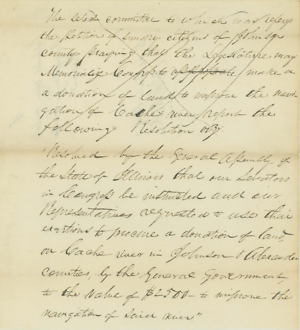 The select committee to which was referred
the petition of sundry citizens of Johnson
county praying that the Legislature may
Memorialize Congress to make a
a donation of land to improve the navi-
gation of Cache river, report the
following Resolution
"Resolved by the General Assembly of
the State of Illinois that our Senators
in Congress be instructed and our
Representatives requested to use their
exertions to procure a donation of land,
on Cache river in Johnson & Alexander
counties, by the General Government,
to the value of $2500 – to improve the
navigation of said river"